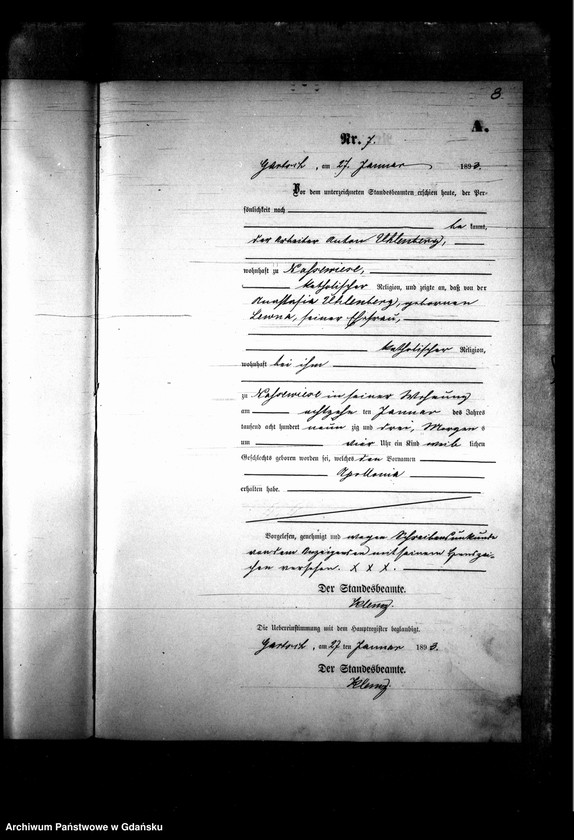 8.
A.
Nr. 7.
am 27. Januar 1893.
Vor dem unterzeichneten Standesbeamten erschien heute, der Per-
sönlichkeit nach
be kannt,
der Arbeiter Anton Uhlenberg,
wohnhaft zu
katholischer Religion, und zeigte an, daß von der
Anastasia Uhlenberg, geborenen
seiner Ehefrau,
katholischer Religion,
wohnhaft bei ihm
zu in seiner Wohnung
am achtzehn ten Januar des Jahres
tausend acht hundert neun zig und drei, Morgen s
um vier Uhr ein Kind weib lichen
Geschlechts geboren worden sei, welches den Vornamen
Apollonia
erhalten habe.
Vorgelesen, genehmigt und wegen Schreibensunkunde
von dem Anzeigenden mit seinem Handzei-
chen versehen. X X X.
Der Standesbeamte.
Die Uebereinstimmung mit dem Hauptregister beglaubigt.
am 27 ten Januar 1893.
Der Standesbeamte.
Archiwum Państwowe w Gdańsku